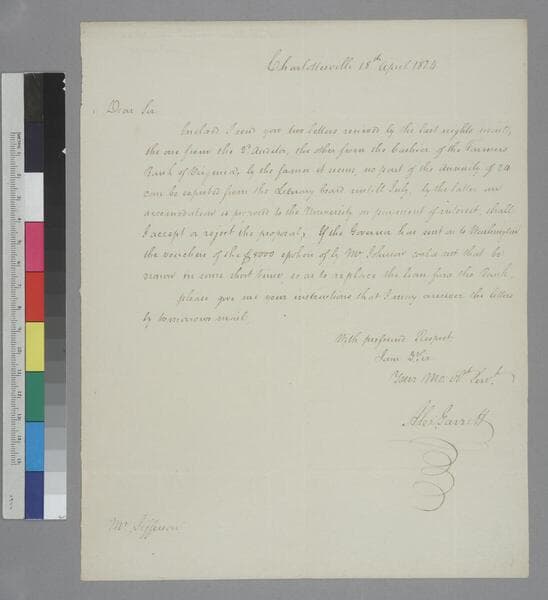 Charlottesville 18th April 1824
Dear Sir
Inclosed I send you two letters received by the last nights mail,
the one from the 2d Auditor, the other from the Cashier of the Farmers
Bank of Virginia, by the former it seems, no part of the annuity of 24
can be expected from the Literary board untill July, by the latter an
accomodation is proposed to the University on payment of interest, shall
I accept or reject the proposal; If the Governor has sent on to Washington
the vouchers of the spoken of by Mr Johnson could not that be
in some short time, so as to replace the loan from the Bank,
please give me your instructions that I may answer the letters
by tomorrows mail
With profound Respect
I am Dr Sir
Your Mo. Obt Servt
Alex Garrett
Mr Jefferson